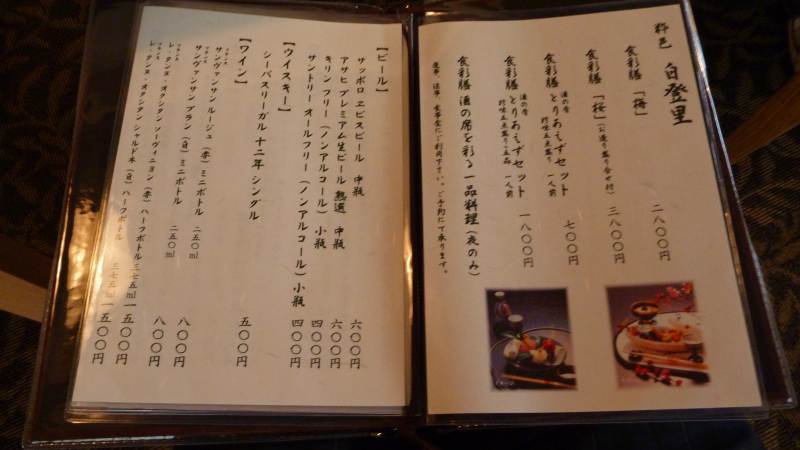 粋邑 白登里
食彩膳 「梅」 二八〇〇円
食彩膳 「桜」(お造り盛り合せ付) 三八〇〇円
酒の肴
食彩膳 とりあえずセット 七〇〇円
珍味五点盛り 一人前
酒の肴
食彩膳 とりあえずセット 一八〇〇円
珍味五点盛り+五品 一人前
食彩膳 酒の席を彩る一品料理(夜のみ)
慶事、法事、会食にご利用下さい。ご予約にて承ります。
【ビール】
サッポロ ヱビスビール 中瓶 六〇〇円
アサヒ プレミアム生ビール 熟選 中瓶 六〇〇円
キリン フリー(ノンアルコール)小瓶 四〇〇円
サントリー オールフリー(ノンアルコール)小瓶 四〇〇円
【ウイスキー】
シーバスリーガル 十二年 シングル 五〇〇円
【ワイン】
フランス
サンヴァンサン ルージュ(赤)ミニボトル 二五〇ml 八〇〇円
フランス
サンヴァンサン ブラン(白)ミニボトル 二五〇ml 八〇〇円
フランス
レ・タンヌ・オクシタン ソーヴィニヨン(赤)ハーフボトル 三七五ml 一五〇〇円
フランス
レ・タンヌ・オクシタン シャルドネ(白)ハーフボトル 三七五ml 一五〇〇円